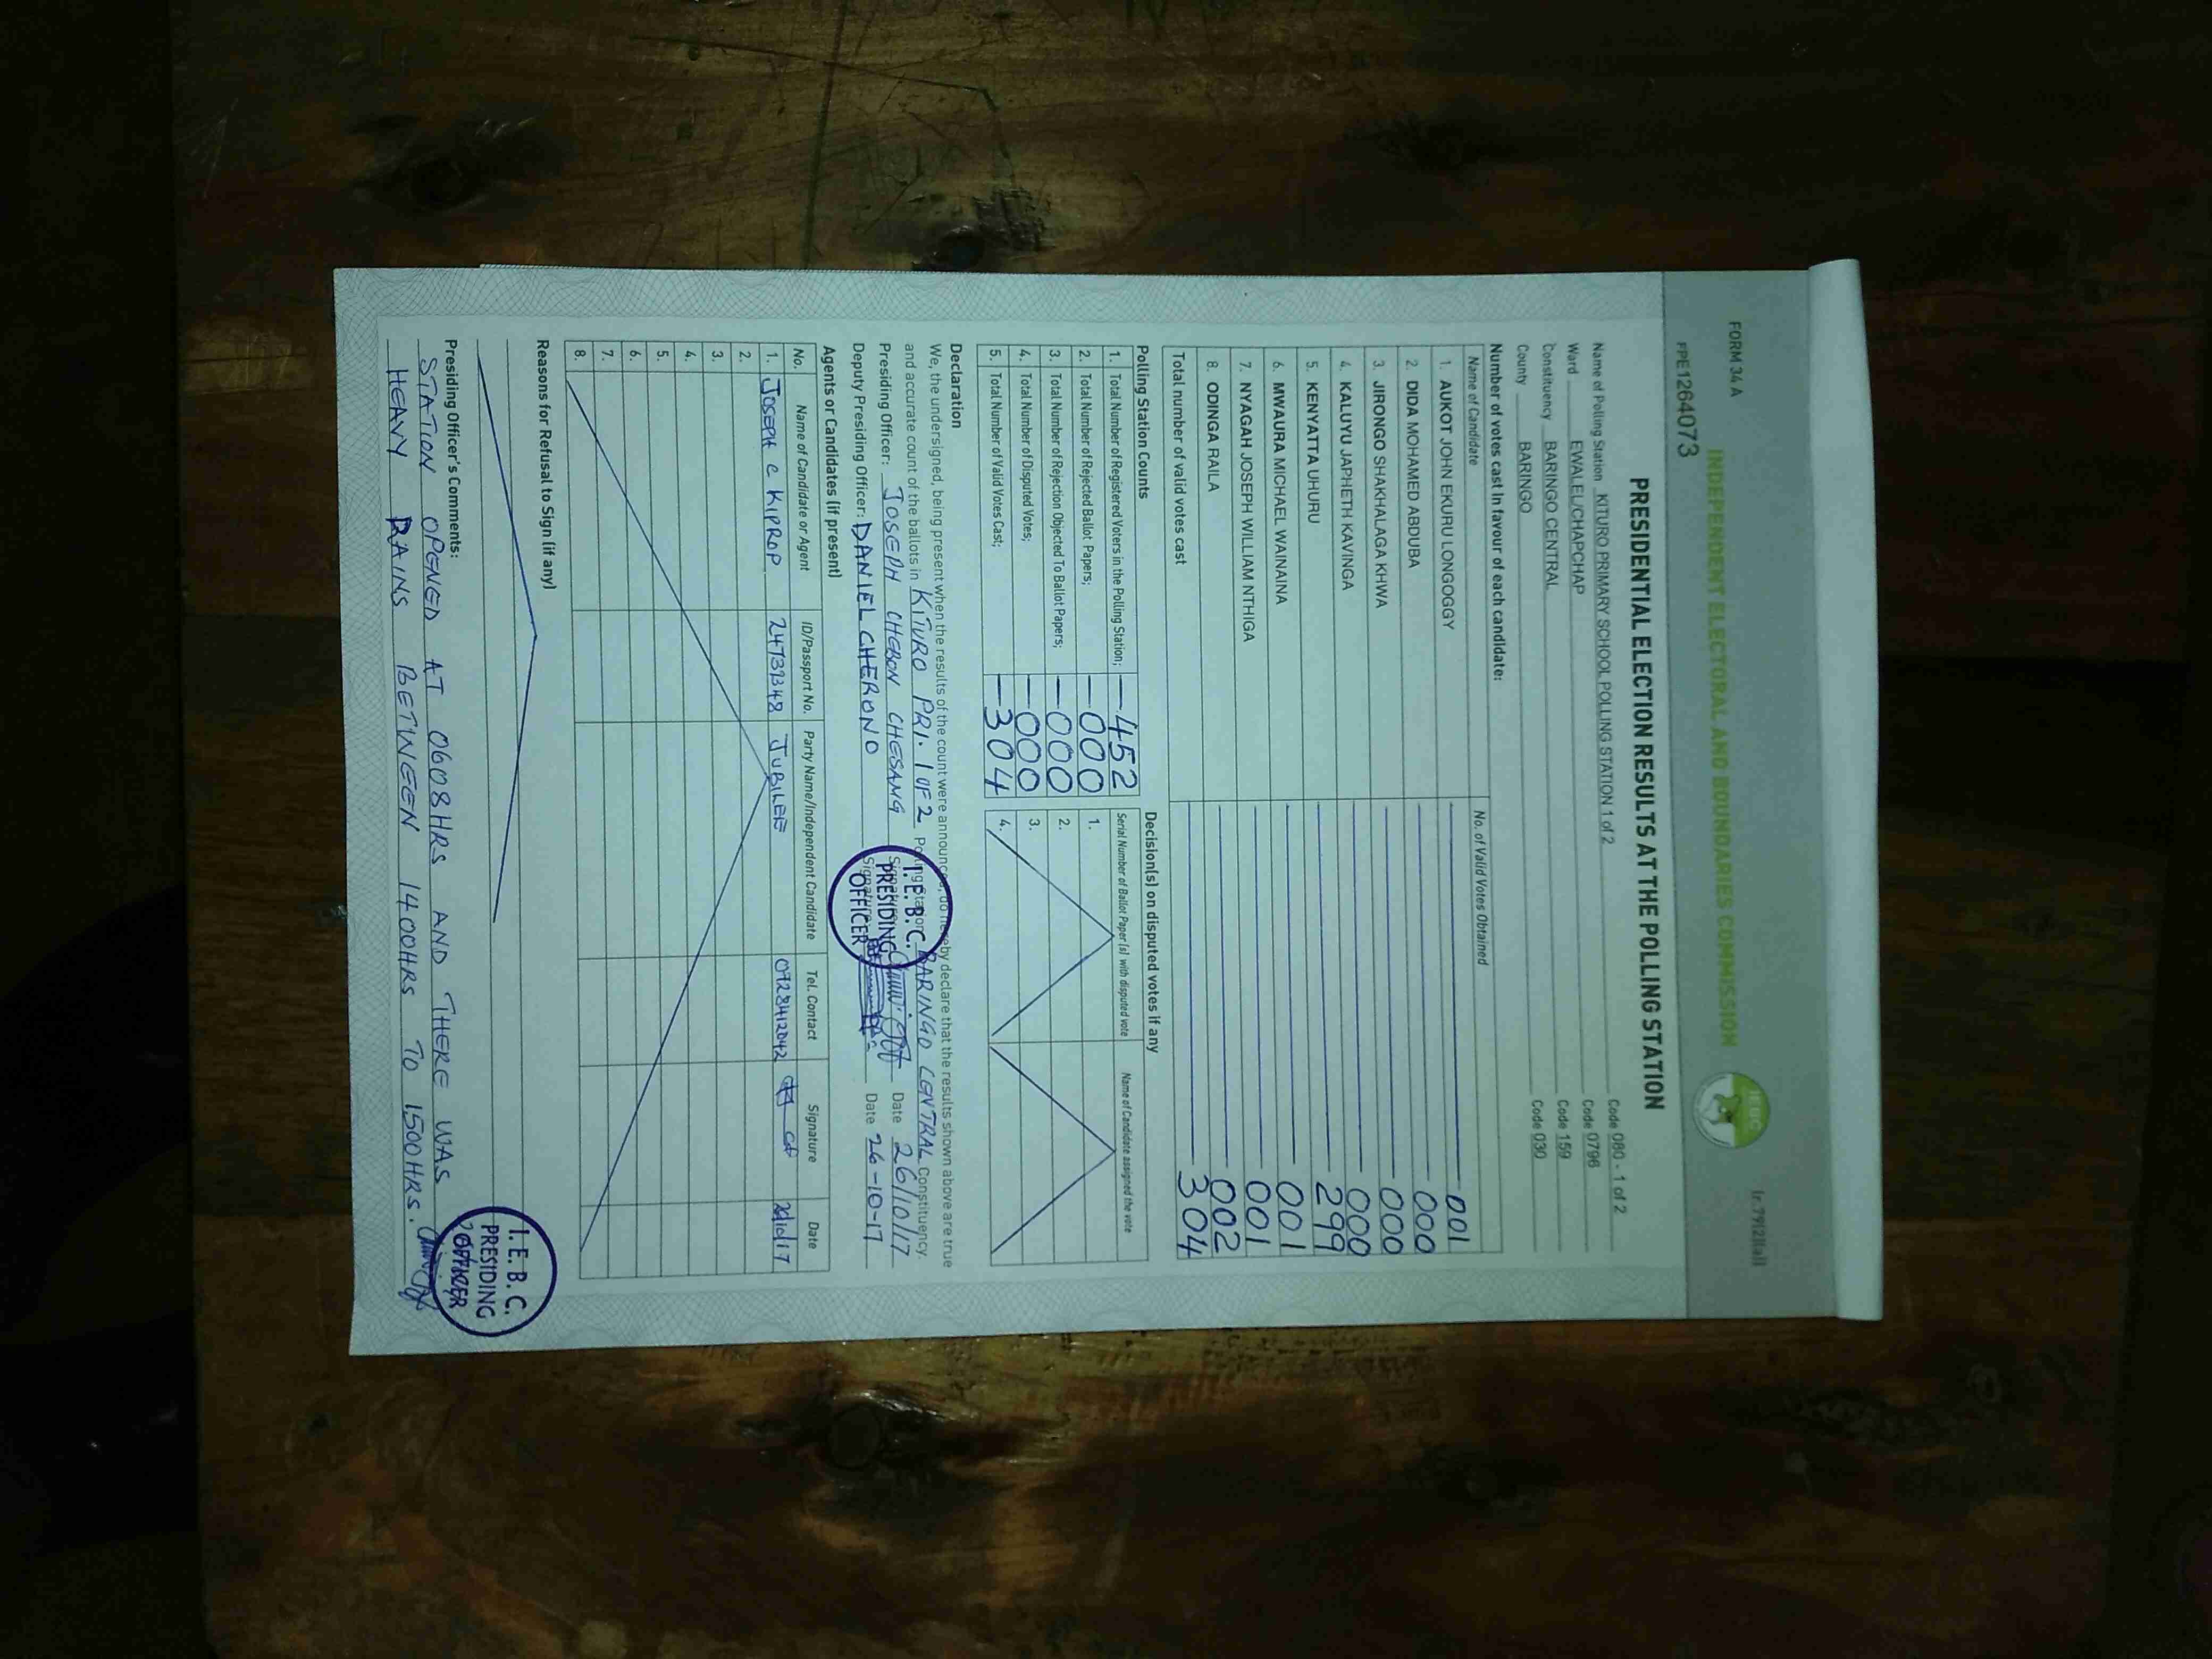 FORM 34 A
(r.79(2)(a))
INDEPENDENT ELECTORAL AND BOUNDARIES COMMISSION
IEBC
FPE1264073
PRESIDENTIAL ELECTION RESULTS AT THE POLLING STATION
Name of Polling Station KITURO PRIMARY SCHOOL POLLING STATION 1 of 2 Code 080 - 1 of 2
Ward EWALEL/CHAPCHAP Code 0796
Constituency BARINGO CENTRAL Code 159
County BARINGO Code 030
Number of votes cast in favour of each candidate:
Name of Candidate No. of Valid Votes Obtained
1. AUKOT JOHN EKURU LONGOGGY 001
2. DIDA MOHAMED ABDUBA 000
3. JIRONGO SHAKHALAGA KHWA 000
4. KALUYU JAPHETH KAVINGA 000
5. KENYATTA UHURU 299
6. MWAURA MICHAEL WAINAINA 001
7. NYAGAH JOSEPH WILLIAM NTHIGA 001
8. ODINGA RAILA 002
Total number of valid votes cast 304
Polling Station Counts
1. Total Number of Registered Voters in the Polling Station; 452
2. Total Number of Rejected Ballot Papers; 000
3. Total Number of Rejection Objected To Ballot Papers; 000
4. Total Number of Disputed Votes; 000
5. Total Number of Valid Votes Cast; 304
Decision(s) on disputed votes if any
Serial Number of Ballot Paper (s) with disputed vote Name of Candidate assigned the vote
1.
2.
3.
4.
Declaration
We, the undersigned, being present when the results of the count were announced, do hereby declare that the results shown above are true
and accurate count of the ballots in KITURO PRI. 1 OF 2 Polling Station BARINGO CENTRAL Constituency.
Presiding Officer: JOSEPH CHEBON CHESANG Signature Date 26/10/17
Deputy Presiding Officer: DANIEL CHERONO Signature Date 26-10-17
I.E.B.C.
PRESIDING
OFFICER
Agents or Candidates (if present)
No. Name of Candidate or Agent ID/Passport No. Party Name/Independent Candidate Tel. Contact Signature Date
1. JOSEPH C KIPROP 24739348 JUBILEE 26/10/17
2.
3.
4.
5.
6.
7.
8.
Reasons for Refusal to Sign (if any)
Presiding Officer's Comments:
STATION OPENED AT 0608HRS AND THERE WAS
HEAVY RAINS BETWEEN 1400HRS TO 1500HRS.
I.E.B.C.
PRESIDING
OFFICER